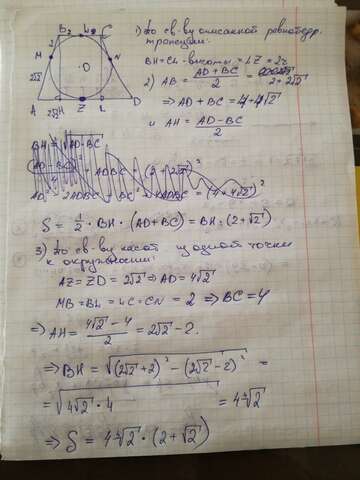 B 2 L 2 C
M N
O
2√2
A 2√2 H Z L D
1) По св-ву описанной равнобедр.
трапеции:
BH = CL - высоты = LZ = 2r
2) AB = (AD + BC)/2 = 2 + 2√2
⇒ AD + BC = 4 + 4√2
и AH = (AD - BC)/2
BH = √AD·BC
S = 1/2 · BH · (AD + BC) = BH · (2 + √2)
3) По св-ву касат. из одной точки
к окружности:
AZ = ZD = 2√2 ⇒ AD = 4√2
MB = BL = LC = CN = 2 ⇒ BC = 4
⇒ AH = (4√2 - 4)/2 = 2√2 - 2.
⇒ BH = √((2√2 + 2)² - (2√2 - 2)²) =
= √(4√2 · 4) = 4 ∜2
⇒ S = 4 ∜2 · (2 + √2)